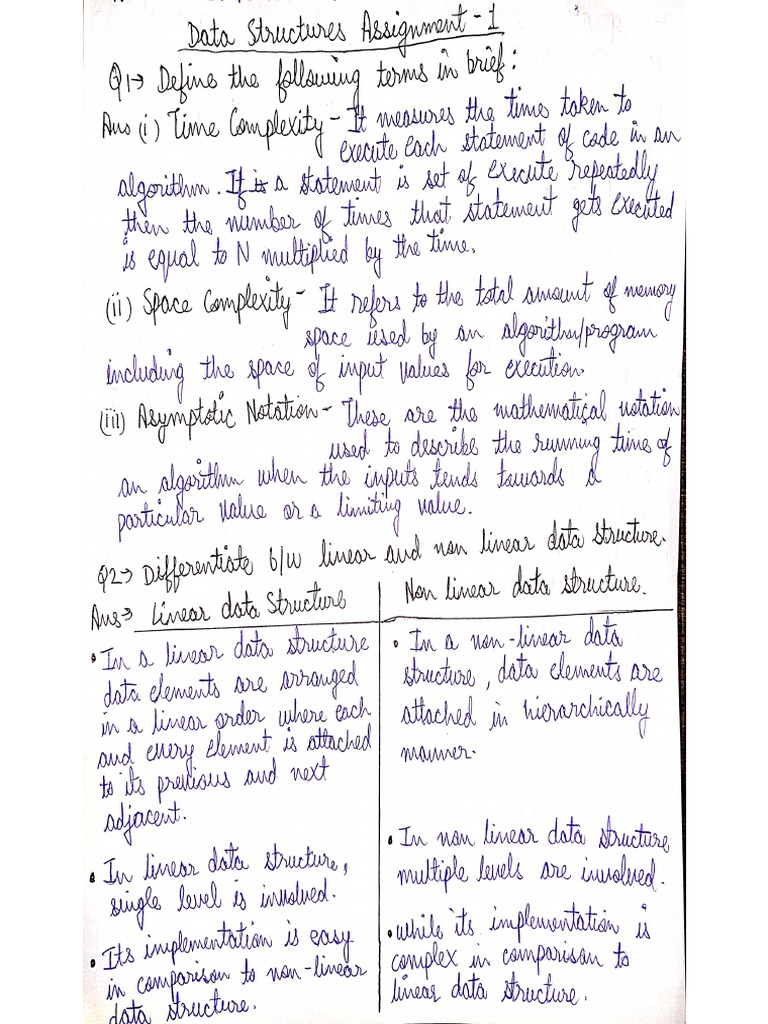 Data Structures Assignment - 1
Q1→ Define the following terms in brief:
Ans (i) Time Complexity - It measures the time taken to
execute each statement of code in an
algorithm. If is a statement is set of execute repeatedly
then the number of times that statement gets executed
is equal to N multiplied by the time.
(ii) Space Complexity - It refers to the total amount of memory
space used by an algorithm/program
including the space of input values for execution.
(iii) Asymptotic Notation - These are the mathematical notation
used to describe the running time of
an algorithm when the inputs tends towards a
particular value or a limiting value.
Q2→ Differentiate b/w linear and non linear data structure.
Ans→ Linear data Structure
Non linear data structure.
• In a linear data structure
data elements are arranged
in a linear order where each
and every element is attached
to its previous and next
adjacent.
• In linear data structure,
single level is involved.
• Its implementation is easy
in comparison to non-linear
data structure.
• In a non-linear data
structure, data elements are
attached in hierarchically
manner.
• In non linear data structure
multiple levels are involved.
• while its implementation is
complex in comparison to
linear data structure.